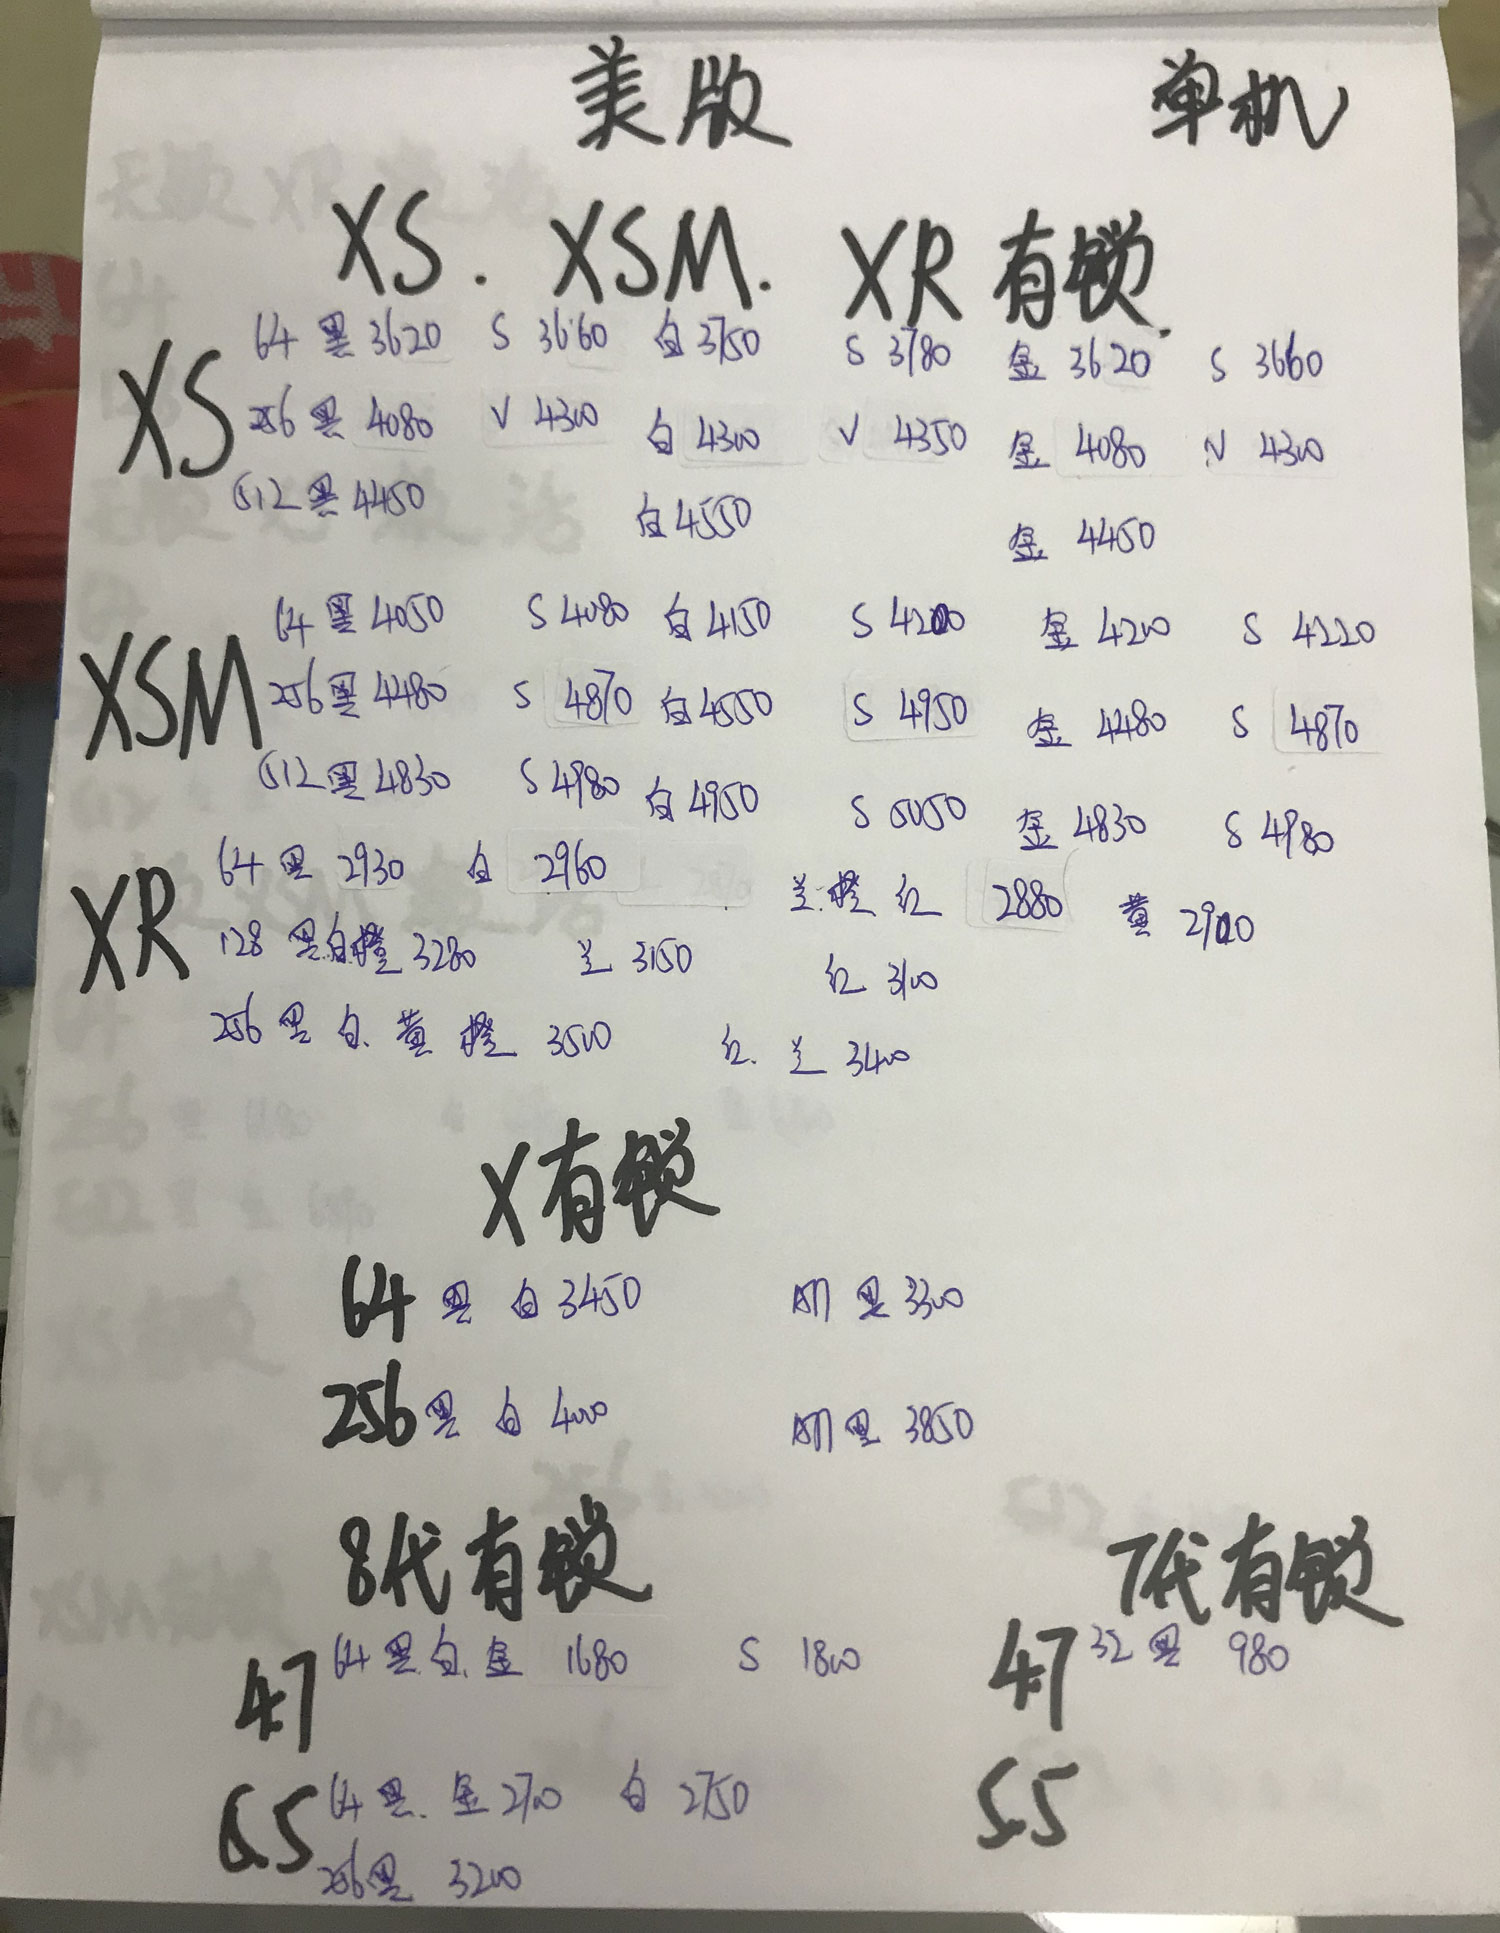 美版 单机
XS. XSM. XR有锁.
XS
64 黑 3620 S 3660 白 3750 S 3780 金 3620 S 3660
256 黑 4080 V 4300 白 4300 V 4350 金 4080 V 4300
512 黑 4450 白 4550 金 4450
XSM
64 黑 4050 S 4080 白 4150 S 4200 金 4200 S 4220
256 黑 4480 S 4870 白 4550 S 4950 金 4480 S 4870
512 黑 4830 S 4980 白 4950 S 5050 金 4830 S 4980
XR
64 黑 2930 白 2960 兰.橙 红 2880 黄 2900
128 黑白橙 3280 兰 3150 红 3100
256 黑 白. 黄 橙 3500 红. 兰 3400
X有锁
64 黑 白 3450 黑 3300
256 黑 白 4000 黑 3850
8代有锁 7代有锁
4.7 64 黑.白.金 1680 S 1800 4.7 32 黑 980
5.5 64 黑. 金 2700 白 2750 5.5
256 黑 3200